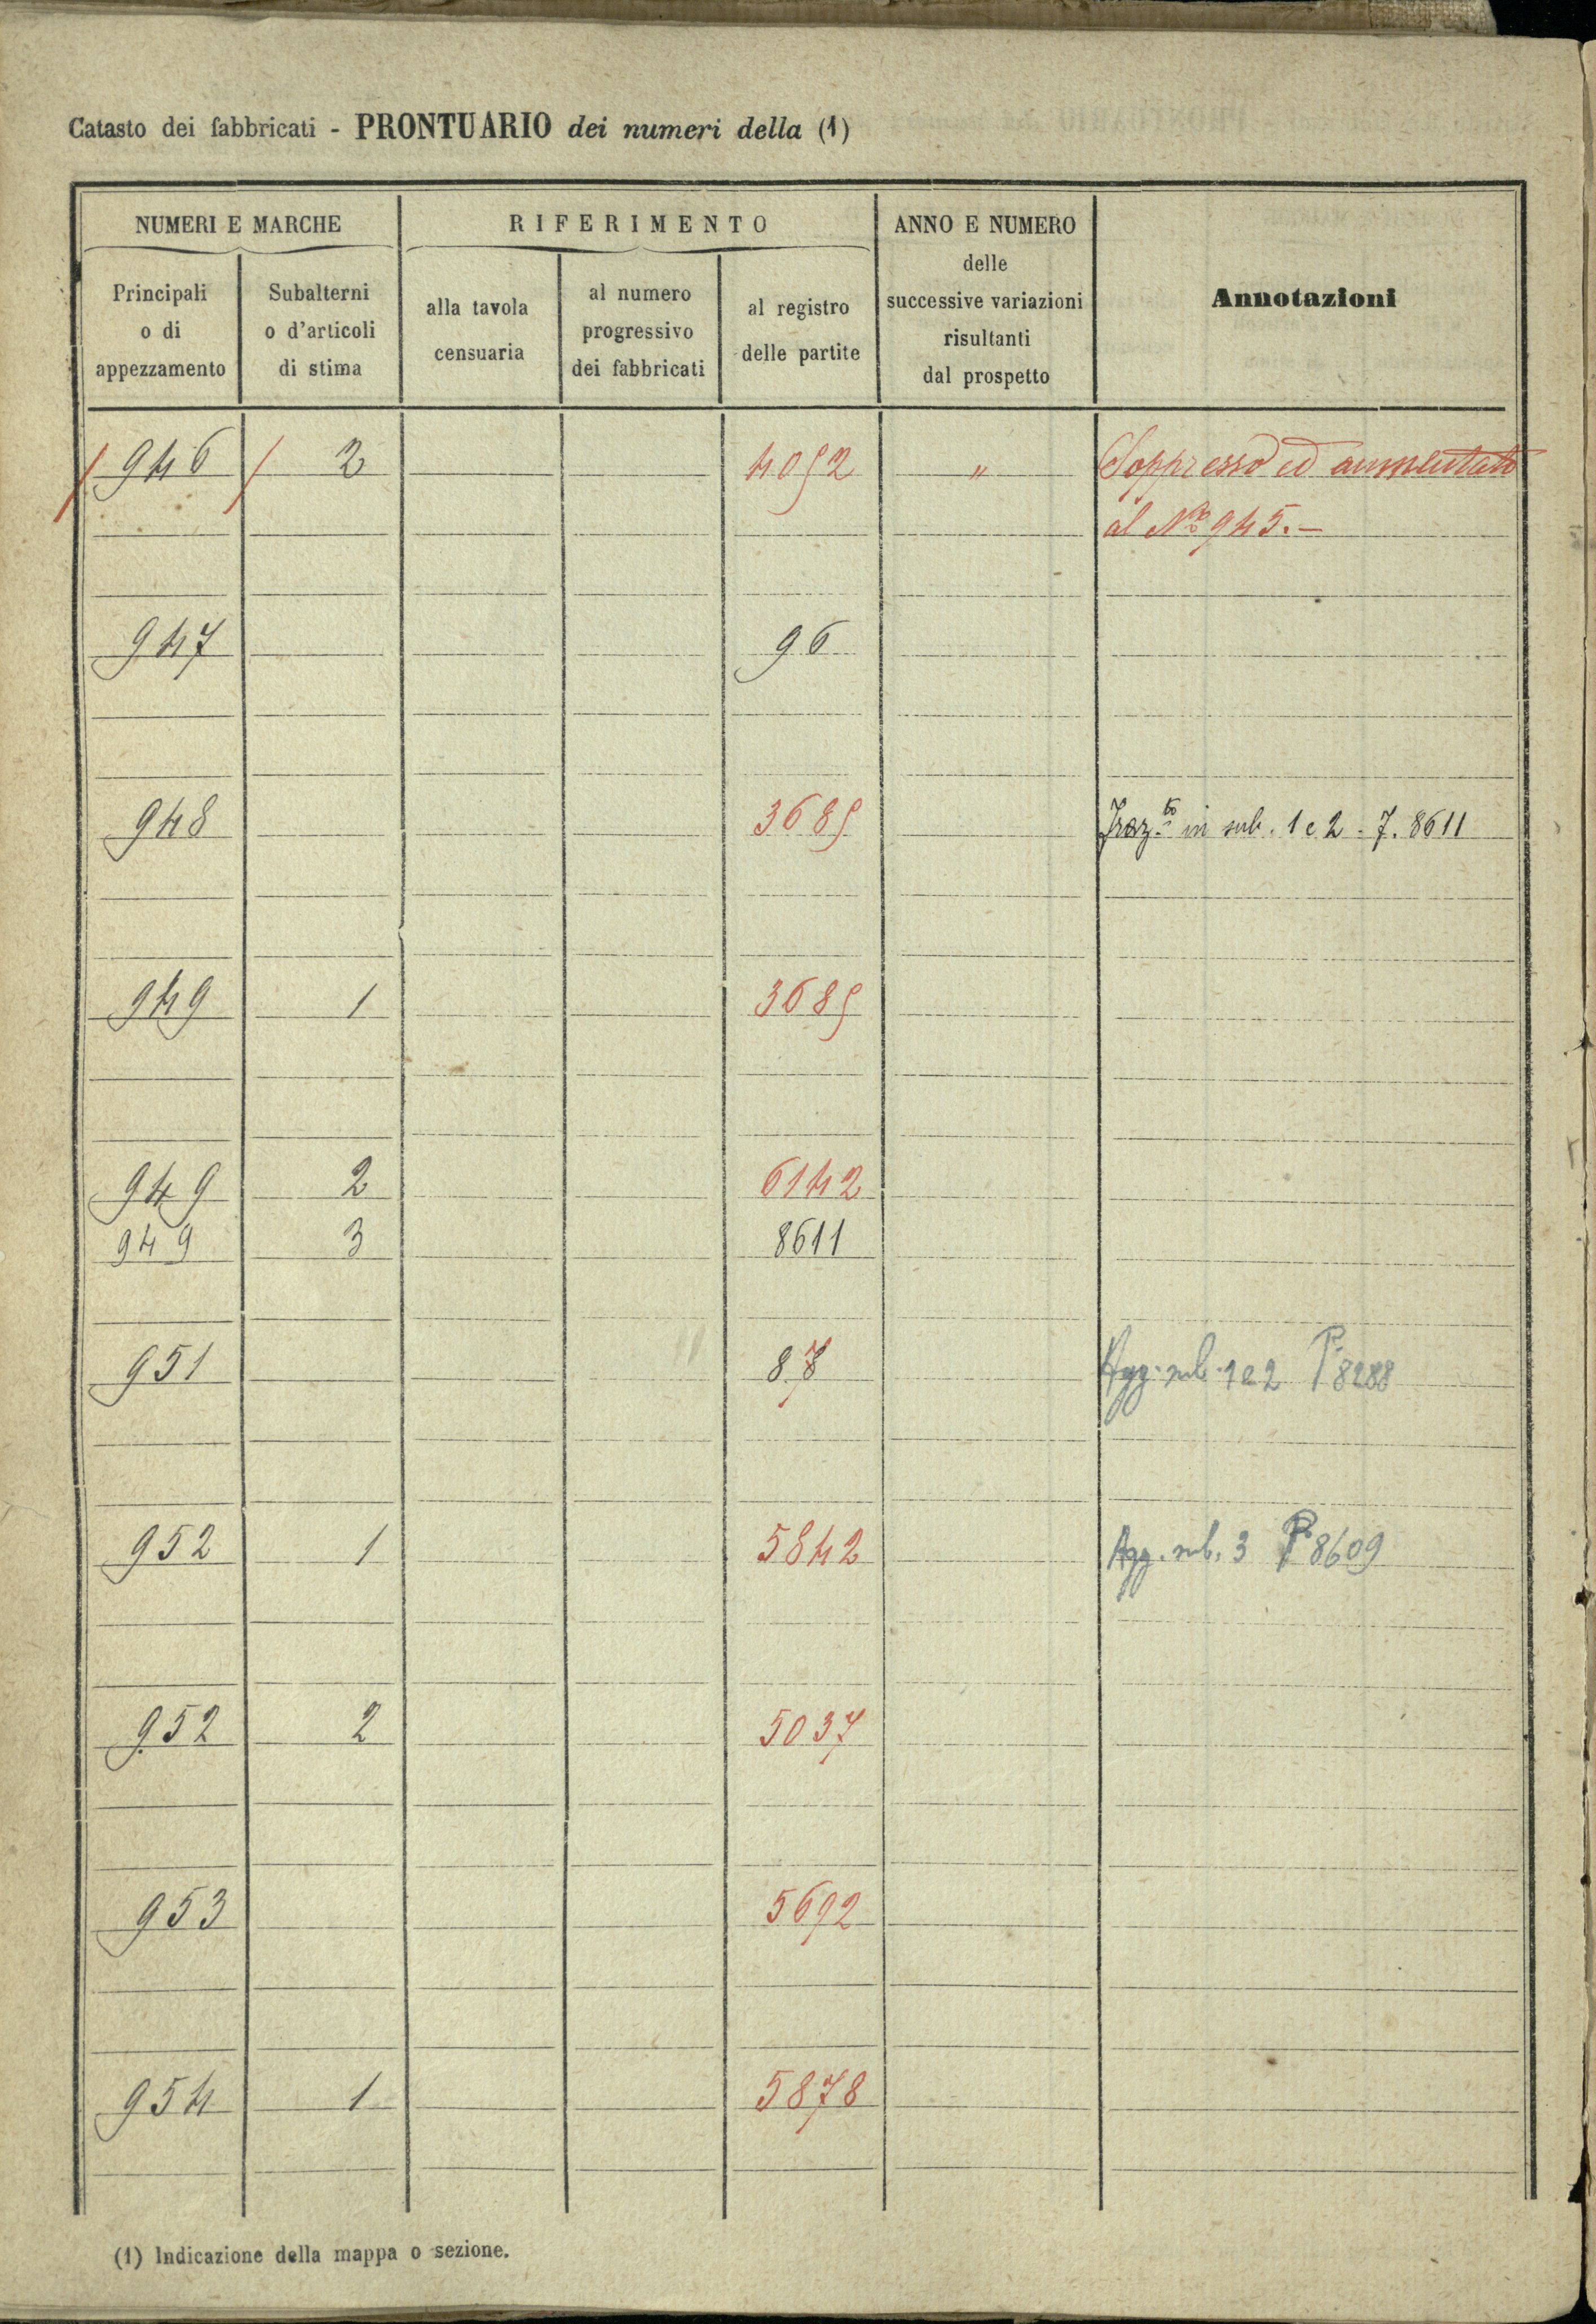 Catasto dei fabbricati - PRONTUARIO dei numeri della (1)
NUMERI E MARCHE RIFERIMENTO ANNO E NUMERO delle successive variazioni risultanti dal prospetto Annotazioni
Principali o di appezzamento Subalterni o d'articoli di stima alla tavola censuaria al numero progressivo dei fabbricati al registro delle partite
946 2 4052 " Soppresso ed aumentato
al No 945.-
947 96
948 3685 Fraz.to in sub. 1 e 2 - 7. 8611
949 1 3685
949 2 6142
949 3 8611
951 Agg. sub. 1 e 2 P. 8288
952 1 5842 Agg. sub. 3 P. 8609
952 2 5037
953 5692
954 1 5878
(1) Indicazione della mappa o sezione.